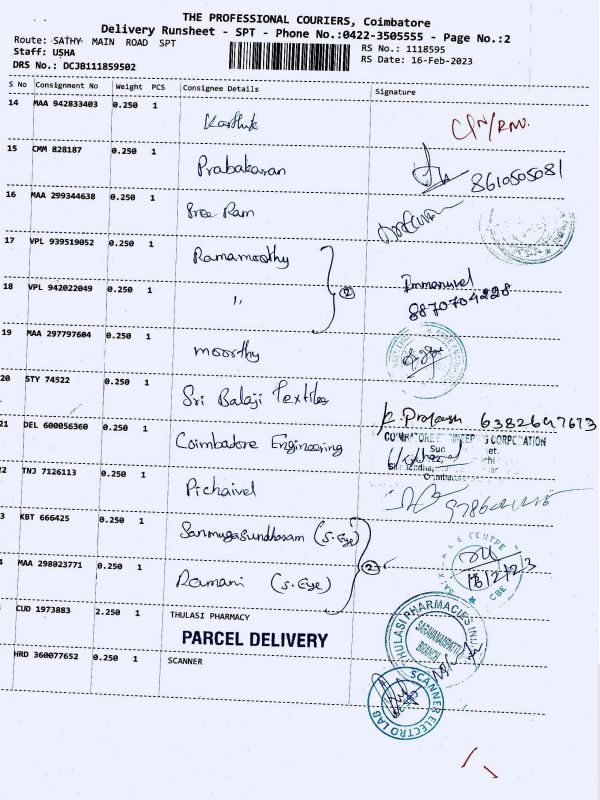 THE PROFESSIONAL COURIERS, Coimbatore
Delivery Runsheet - SPT - Phone No.:0422-3505555 - Page No.:2
Route: SATHY MAIN ROAD SPT
Staff: USHA
DRS No.: DCJB111859502
RS No.: 1118595
RS Date: 16-Feb-2023
S No Consignment No Weight PCS Consignee Details Signature
14 MAA 942833403 0.250 1 Karthik
15 CMM 828187 0.250 1 Prabakaran 8610505081
16 MAA 299344638 0.250 1 Sree Ram
17 VPL 939519052 0.250 1 Ramamoorthy
18 VPL 942022049 0.250 1 " 2 Immanuvel
8870704228
19 MAA 297797604 0.250 1 moorthy
20 STY 74522 0.250 1 Sri Balaji Textiles 6382647673
21 DEL 600056360 0.250 1 Coimbatore Engineering
2 TNJ 7126113 0.250 1 Pichaivel
3 KBT 666425 0.250 1 Sanmugasundharam (S. Eye)
4 MAA 298023771 0.250 1 Ramani (S. Eye) 2 16/2/23
CUD 1973883 2.250 1 THULASI PHARMACY
PARCEL DELIVERY
THULASI PHARMACIES INDIA
SARAVANAMPATTI
BRANCH
HRD 360077652 0.250 1 SCANNER
SCANNER ELECTRO LAB